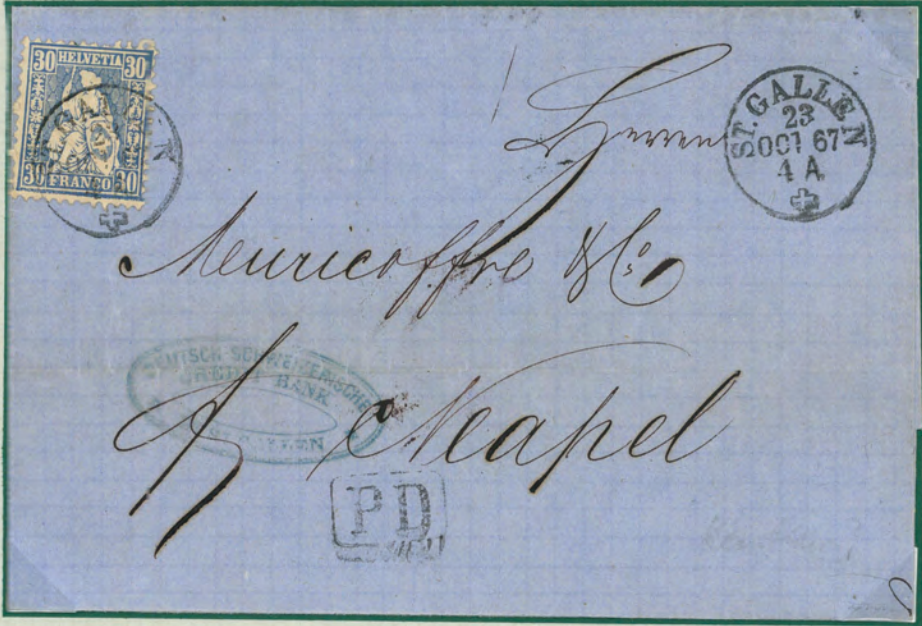 30 HELVETIA 30
30 FRANCO 30
ST. GALLEN
23
OCT 67
4 A
Herren
Meuricoffre & Co.
Neapel
DEUTSCH-SCHWEIZERISCHE
CREDIT BANK
ST. GALLEN
PD